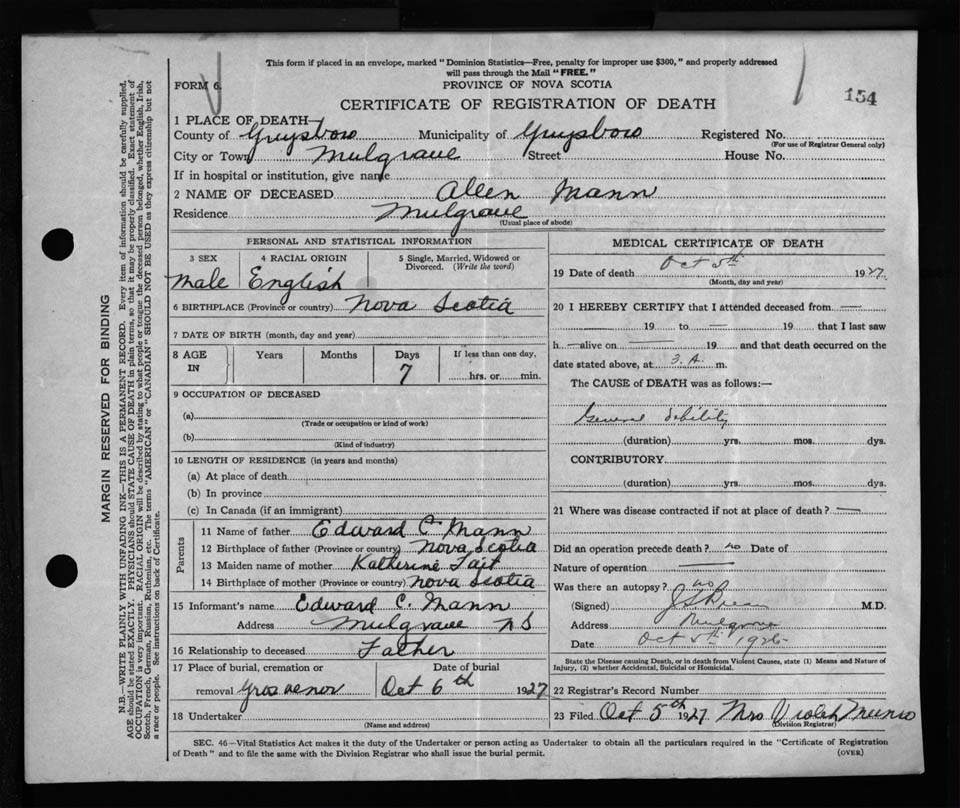 This form if placed in an envelope, marked "Dominion Statistics—Free, penalty for improper use $300," and properly addressed
will pass through the Mail "FREE."
FORM 6. PROVINCE OF NOVA SCOTIA
CERTIFICATE OF REGISTRATION OF DEATH 154
1 PLACE OF DEATH—
County of Guysboro Municipality of Guysboro Registered No.
(For use of Registrar General only)
City or Town Mulgrave Street House No.
If in hospital or institution, give name
2 NAME OF DECEASED Allen Mann
Residence Mulgrave
(Usual place of abode)
PERSONAL AND STATISTICAL INFORMATION
3 SEX 4 RACIAL ORIGIN 5 Single, Married, Widowed or
Divorced. (Write the word)
Male English
6 BIRTHPLACE (Province or country) Nova Scotia
7 DATE OF BIRTH (month, day and year)
8 AGE IN Years Months Days If less than one day,
7 hrs. or min.
9 OCCUPATION OF DECEASED
(a)
(Trade or occupation or kind of work)
(b)
(Kind of industry)
10 LENGTH OF RESIDENCE (in years and months)
(a) At place of death
(b) In province
(c) In Canada (if an immigrant)
Parents
11 Name of father Edward C Mann
12 Birthplace of father (Province or country) Nova Scotia
13 Maiden name of mother Katherine Tait
14 Birthplace of mother (Province or country) Nova Scotia
15 Informant's name Edward C. Mann
Address Mulgrave NS
16 Relationship to deceased Father
17 Place of burial, cremation or Date of burial
removal Grosvenor Oct 6th 1927
18 Undertaker
(Name and address)
MEDICAL CERTIFICATE OF DEATH
19 Date of death Oct 5th 1927
(Month, day and year)
20 I HEREBY CERTIFY that I attended deceased from —
19 to — 19 that I last saw
h — alive on — 19 and that death occurred on the
date stated above, at 3. A. m.
The CAUSE of DEATH was as follows:—
General debility
(duration) yrs. mos. dys.
CONTRIBUTORY
(duration) yrs. mos. dys.
21 Where was disease contracted if not at place of death? —
Did an operation precede death? no Date of
Nature of operation —
Was there an autopsy? no
(Signed) M.D.
Address Mulgrave
Date Oct 5th 1926
State the Disease causing Death, or in death from Violent Causes, state (1) Means and Nature of
Injury, (2) whether Accidental, Suicidal or Homicidal.
22 Registrar's Record Number
23 Filed Oct 5th 1927 Mrs Violet Munro
(Division Registrar)
SEC. 46—Vital Statistics Act makes it the duty of the Undertaker or person acting as Undertaker to obtain all the particulars required in the "Certificate of Registration
of Death" and to file the same with the Division Registrar who shall issue the burial permit. (OVER)
MARGIN RESERVED FOR BINDING
N.B.—WRITE PLAINLY WITH UNFADING INK—THIS IS A PERMANENT RECORD. Every item of information should be carefully supplied.
AGE should be stated EXACTLY. PHYSICIANS should STATE CAUSE OF DEATH in plain terms, so that it may be properly classified. Exact statement of
OCCUPATION is very important. RACIAL ORIGIN will be described by stating to what people or tongue the deceased person belonged, whether English, Irish,
Scotch, French, German, Russian, Ruthenian, etc. The terms "AMERICAN" or "CANADIAN" SHOULD NOT BE USED as they express citizenship but not
a race or people. See instructions on back of Certificate.